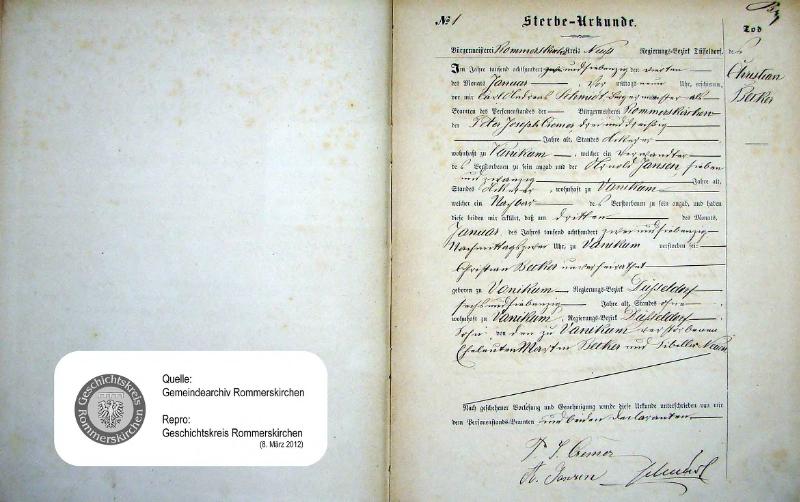 № 1
Sterbe-Urkunde.
Tod
Bürgermeisterei Rommerskirchen Kreis Neuß Regierungs-Bezirk Düsseldorf.
des
Christian
Becker
Im Jahre tausend achthundert zwei und siebenzig den vierten
des Monats Januar Vor mittags neun Uhr, erschienen,
vor mir Carl Andreas Schmidt Bürgermeister als
Beamten des Personenstandes der Bürgermeisterei Rommerskirchen
der Peter Joseph Cremer, drei und dreißig
Jahre alt, Standes Ackerer,
wohnhaft zu Vanikum, welcher ein Verwandter
des Verstorbenen zu sein angab und der Arnold Jansen, sieben
und zwanzig Jahre alt,
Standes Ackerer, wohnhaft zu Vanikum
welcher ein Nachbar des Verstorbenen zu sein angab, und haben
diese beiden mir erklärt, daß am dritten des Monats
Januar des Jahres tausend achthundert zwei und siebenzig
Nachmittags zwei Uhr, zu Vanikum verstorben sei:
Christian Becker unverheirathet
geboren zu Vanikum Regierungs-Bezirk Düsseldorf
sechs und siebenzig Jahre alt, Standes ohne
wohnhaft zu Vanikum, Regierungs-Bezirk Düsseldorf
Sohn von den zu Vanikum verstorbenen
Eheleuten Martin Becker und Sibilla
Nach geschehener Vorlesung und Genehmigung wurde diese Urkunde unterschrieben von mir
dem Personenstands-Beamten und beiden Declaranten
P. J. Cremer
A. Janzen Schmidt
Geschichtskreis
Rommerskirchen
Quelle:
Gemeindearchiv Rommerskirchen
Repro:
Geschichtskreis Rommerskirchen
(8. März 2012)